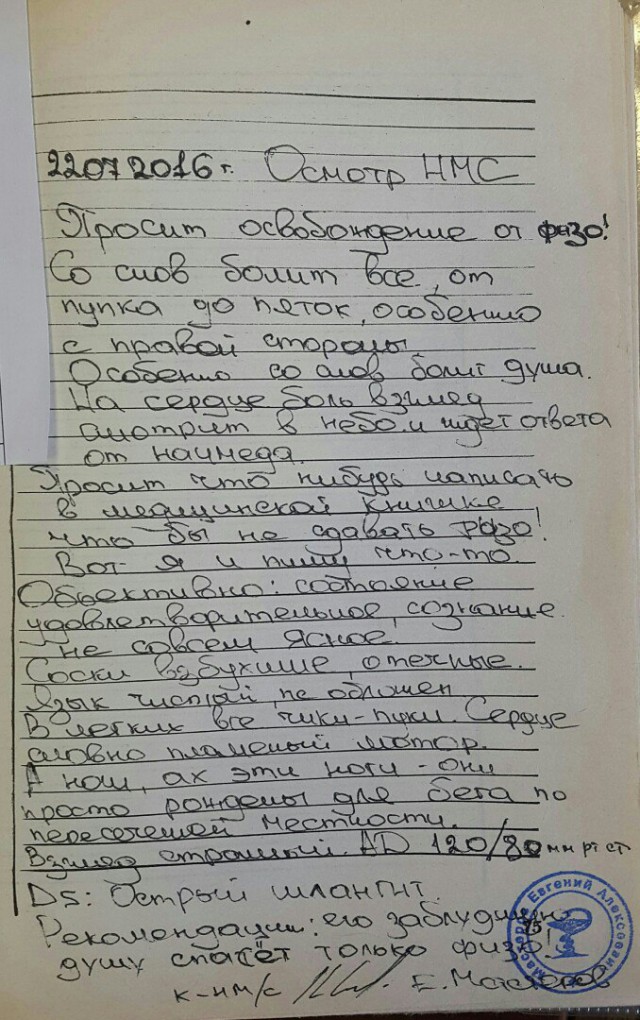 22072016г. Осмотр НМС
Просит освобождение от физо!
Со слов болит все, от
пупка до пяток, особенно
с правой стороны
Особенно со слов болит душа.
На сердце боль взгляд
смотрит в небо и ждет ответа
от начмеда.
Просит что нибудь написать
в медицинской книжке
что бы не сдавать физо!
Вот я и пишу что-то.
Объективно: состояние
удовлетворительное, сознание
не совсем ясное.
Соски взбухшие, отечные.
Язык чистый, не обложен
В легких все чики-пуки. Сердце
словно пламеный мотор.
А ноги, ах эти ноги - они
просто рождены для бега по
пересеченей местности.
Взгляд страшный. AD 120/80 мм рт ст
DS: Острый шлангит.
Рекомендации: его заблудшую
душу спасёт только физо!
к-н м/с Е.
Евгений